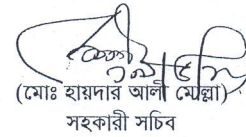 (মোঃ হায়দার আলী মোল্লা)
সহকারী সচিব